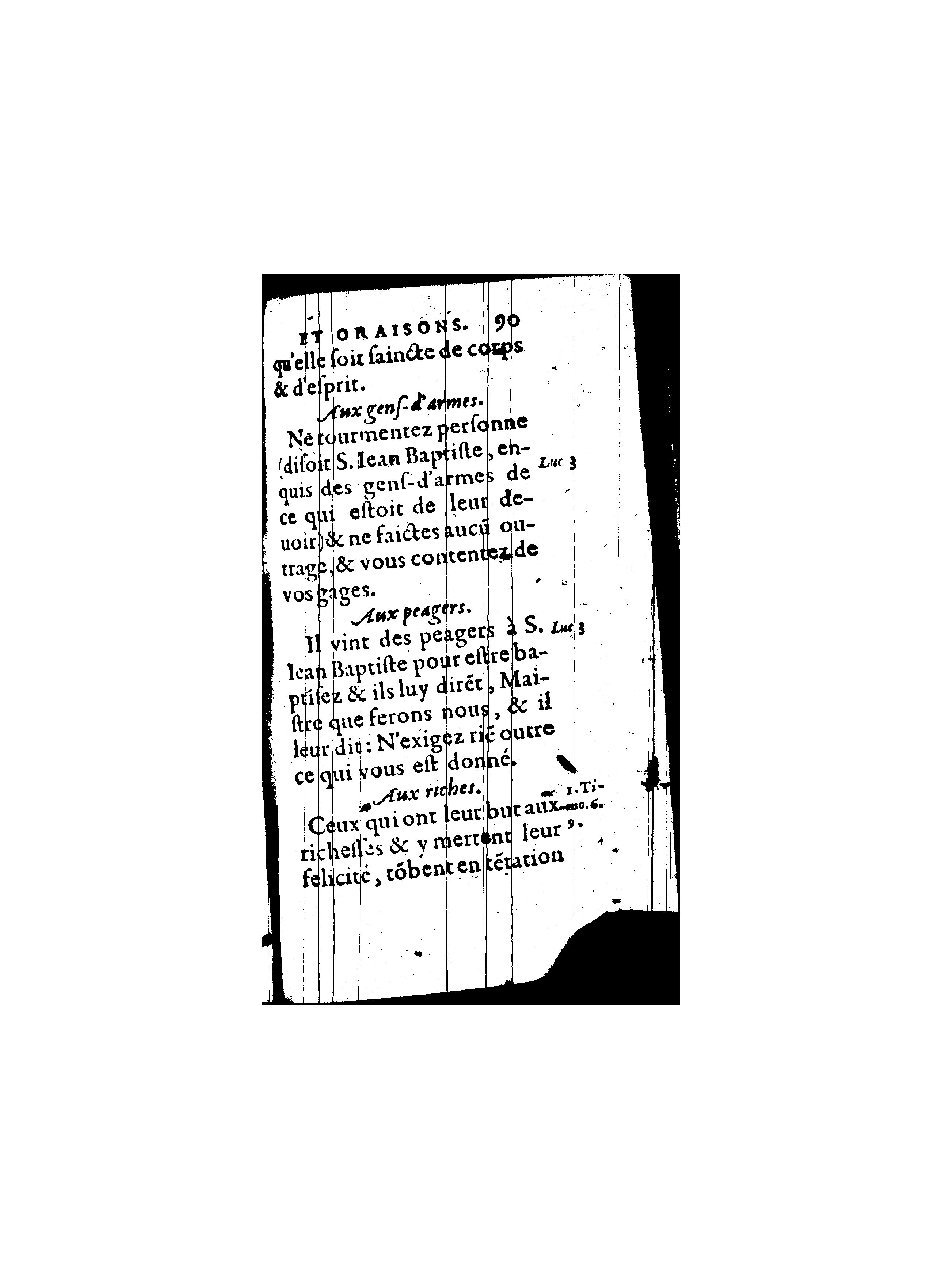 ET ORAISONS. 90
qu'elle ſoit ſaincte de corps
& d'eſprit.
Aux genſ-d'armes.
Ne tourmentez perſonne
(diſoit S. Iean Baptiſte, en-
quis des genſ-d'armes de
Luc 3
ce qui eſtoit de leur de-
uoir) & ne faictes aucū ou-
trage, & vous contentez de
vos gages.
Aux peagers.
Il vint des peagers à S.
Luc 3
Iean Baptiſte pour eſtre ba-
ptiſez & ils luy dirēt, Mai-
ſtre que ferons nous, & il
leur dit: N'exigez riē outre
ce qui vous eſt donné.
Aux riches.
1. Ti-
Ceux qui ont leur but aux
mo. 6.
richeſſes & y mettent leur
9.
felicité, tōbent en tētation